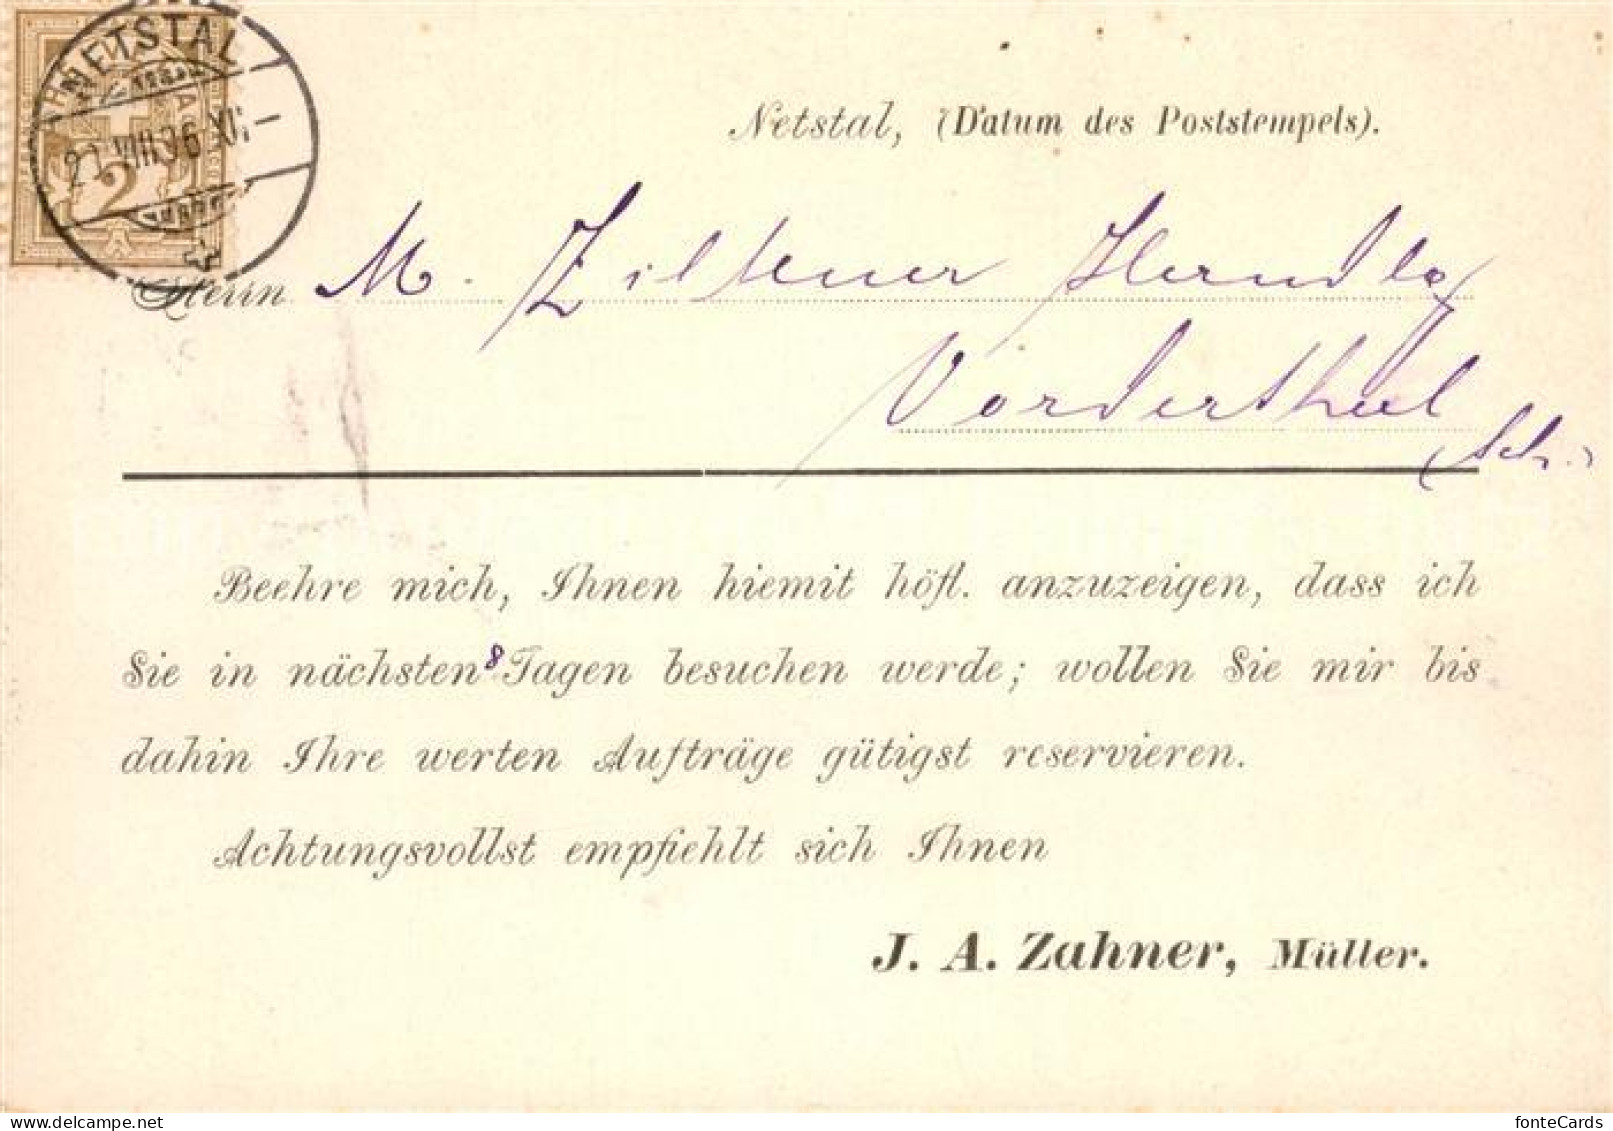 NETSTAL
21. VIII 96 XI
2
Netstal, (Datum des Poststempels).
Herrn M. Ziltener Handlg
Vorderthal
(Sch.)
Beehre mich, Ihnen hiemit höfl. anzuzeigen, dass ich
Sie in nächsten 8 Tagen besuchen werde; wollen Sie mir bis
dahin Ihre werten Aufträge gütigst reservieren.
Achtungsvollst empfiehlt sich Ihnen
J. A. Zahner, Müller.
fonteCards
www.delcampe.net